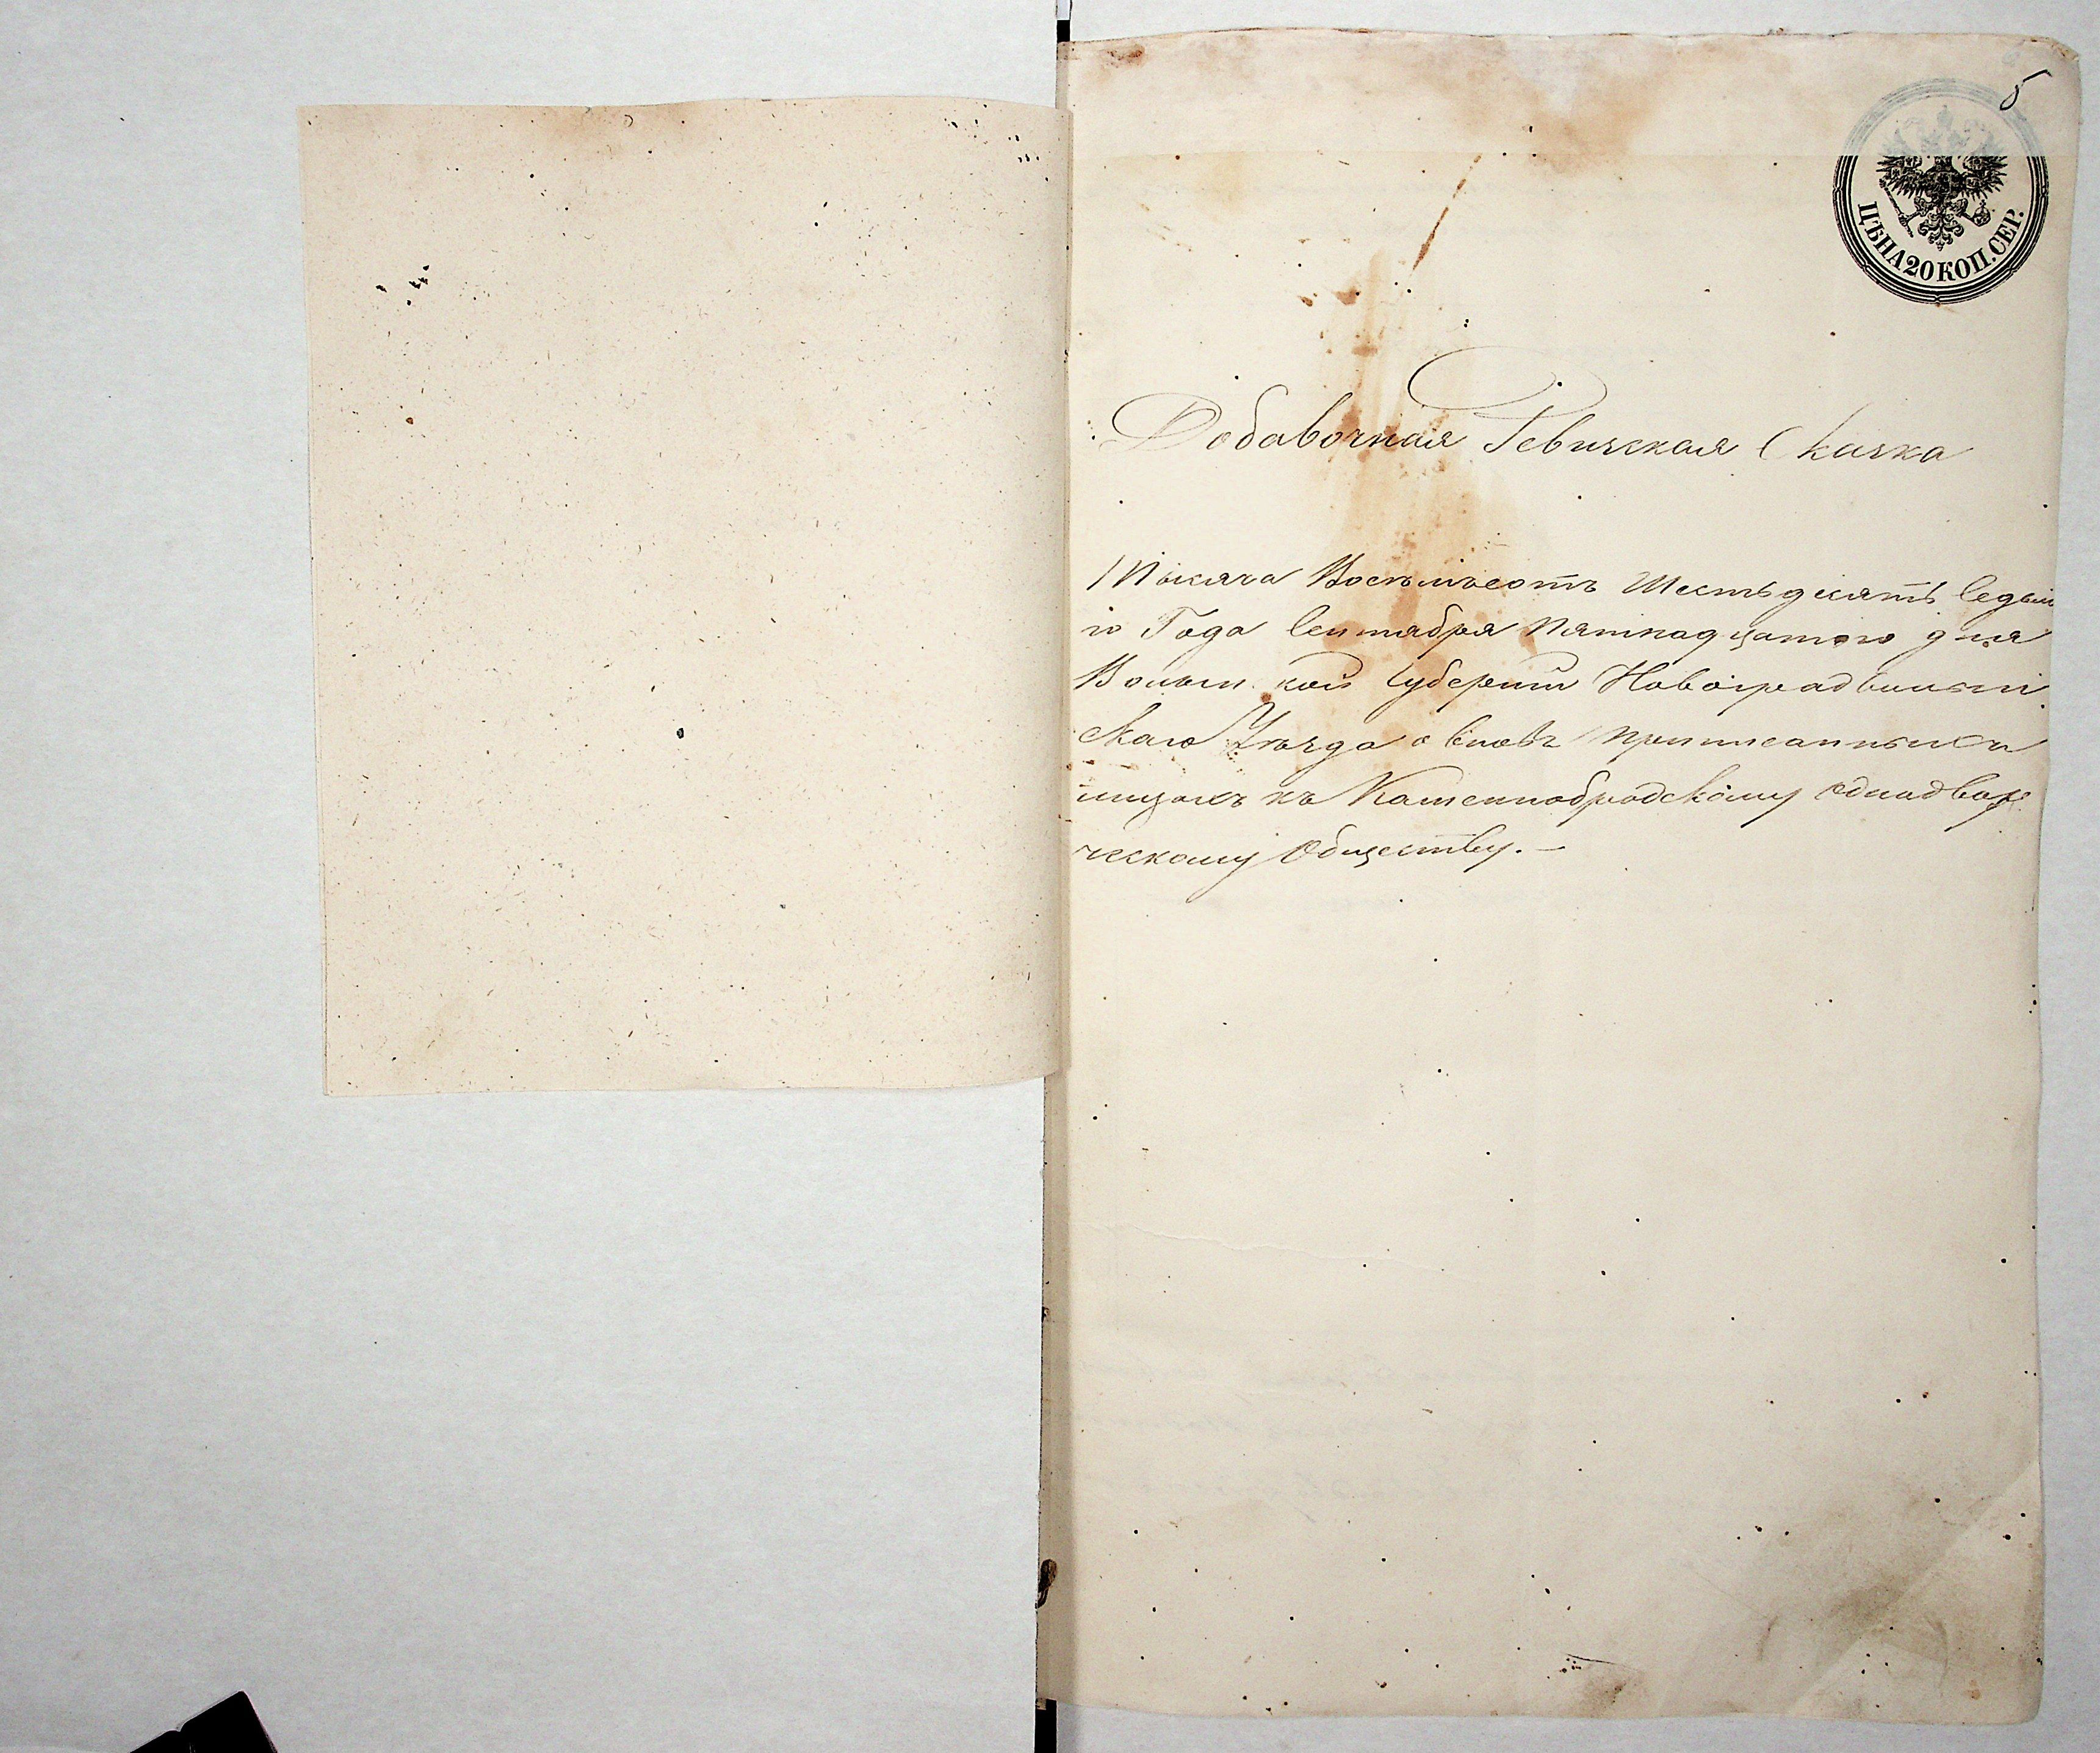 5
ЦѢНА 20 КОП. СЕР.
Добавочная Ревизская Сказка
Тысяча Восемьсотъ Шестьдесятъ Седьма
го Года Сентября Пятнадцатого дня
Волынской Губерніи Новоградволын
скаго Уѣзда о вновь приписанныхъ
лицахъ къ Каменнобродскому Однодвор
ческому Обществу. —